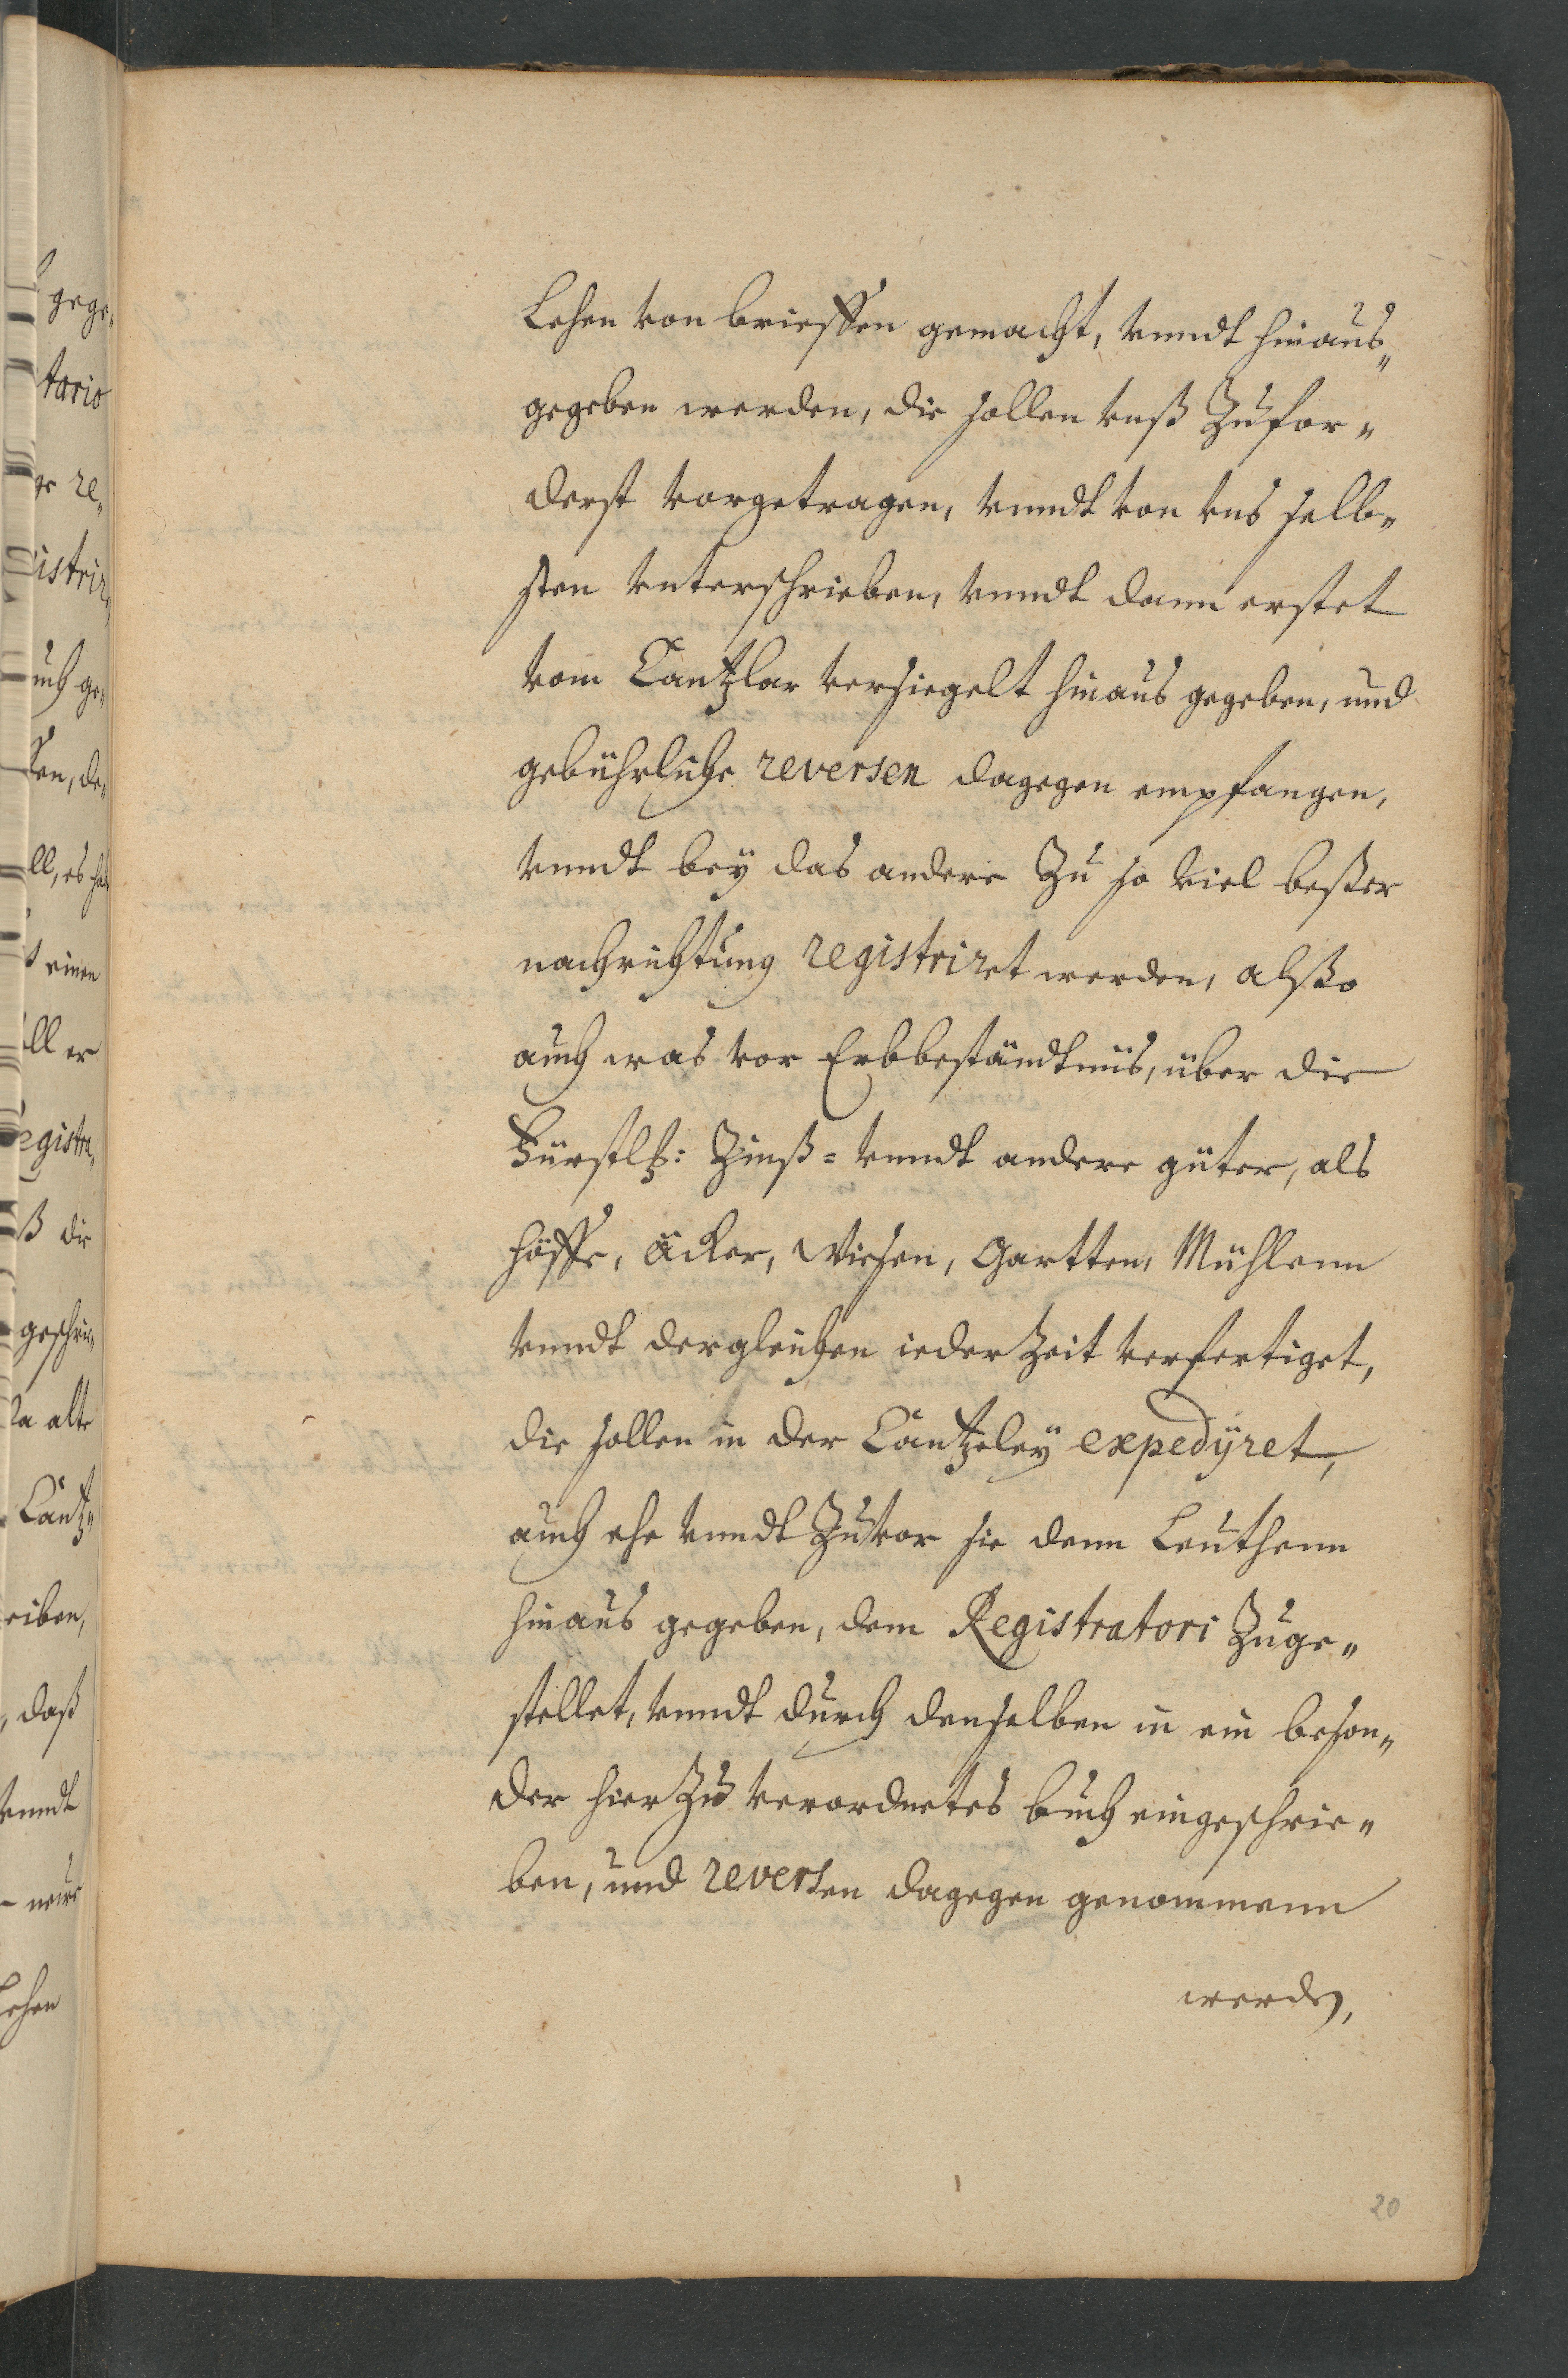 Lehen von brieffen gemacht, vnndt hinaus„
gegeben werden, die sollen vnß Zufor„
derst vorgetragen, vnndt von vns selb„
sten vnterschrieben, vnndt dann erstet
vom Cantzlar versiegelt hinaus gegeben, und
gebührliche reversen dagegen empfangen,
vnndt beÿ das andere Zu so viel beßer
nachrichtung registriret werden, alßo
auch was vor Erbbeständtnüs, über die
Fürstlh: Zinß= vnndt andere güter, als
höffe, äcker, Wiesen, Gartten, Mühlenn
vnndt dergleichen ieder Zeit verfertiget,
die sollen in der Cantzeleÿ expedÿret,
auch ehe vnndt Zuvor sie denn Leuthenn
hinaus gegeben, dem Registratori Zuge„
stellet, vnndt durch denselben in ein beson„
der hier Zu verordnetes buch eingeschrie„
ben, und reversen dagegen genommenn
werden,
20
gege„
tario
re„
istrir„
uch ge„
en, de„
ll, es
einen
ll er
egistra„
ß die
geschrie„
alte
Cantz„
eiben,
, daß
vnndt
neue
Lehen